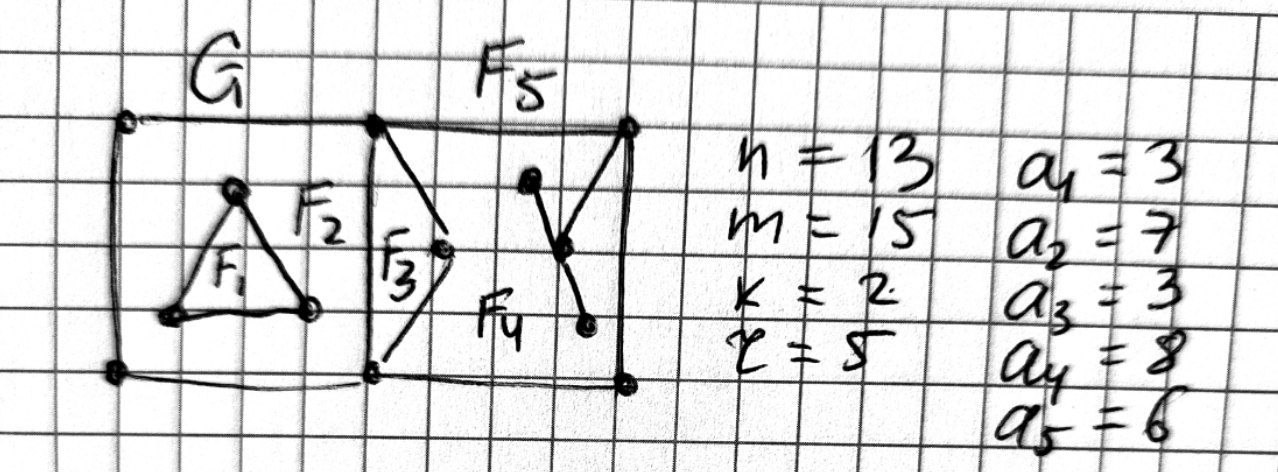 G F₅
F₂
F₁
F₃
F₄
n = 13
m = 15
k = 2
r = 5
a₁ = 3
a₂ = 7
a₃ = 3
a₄ = 8
a₅ = 6